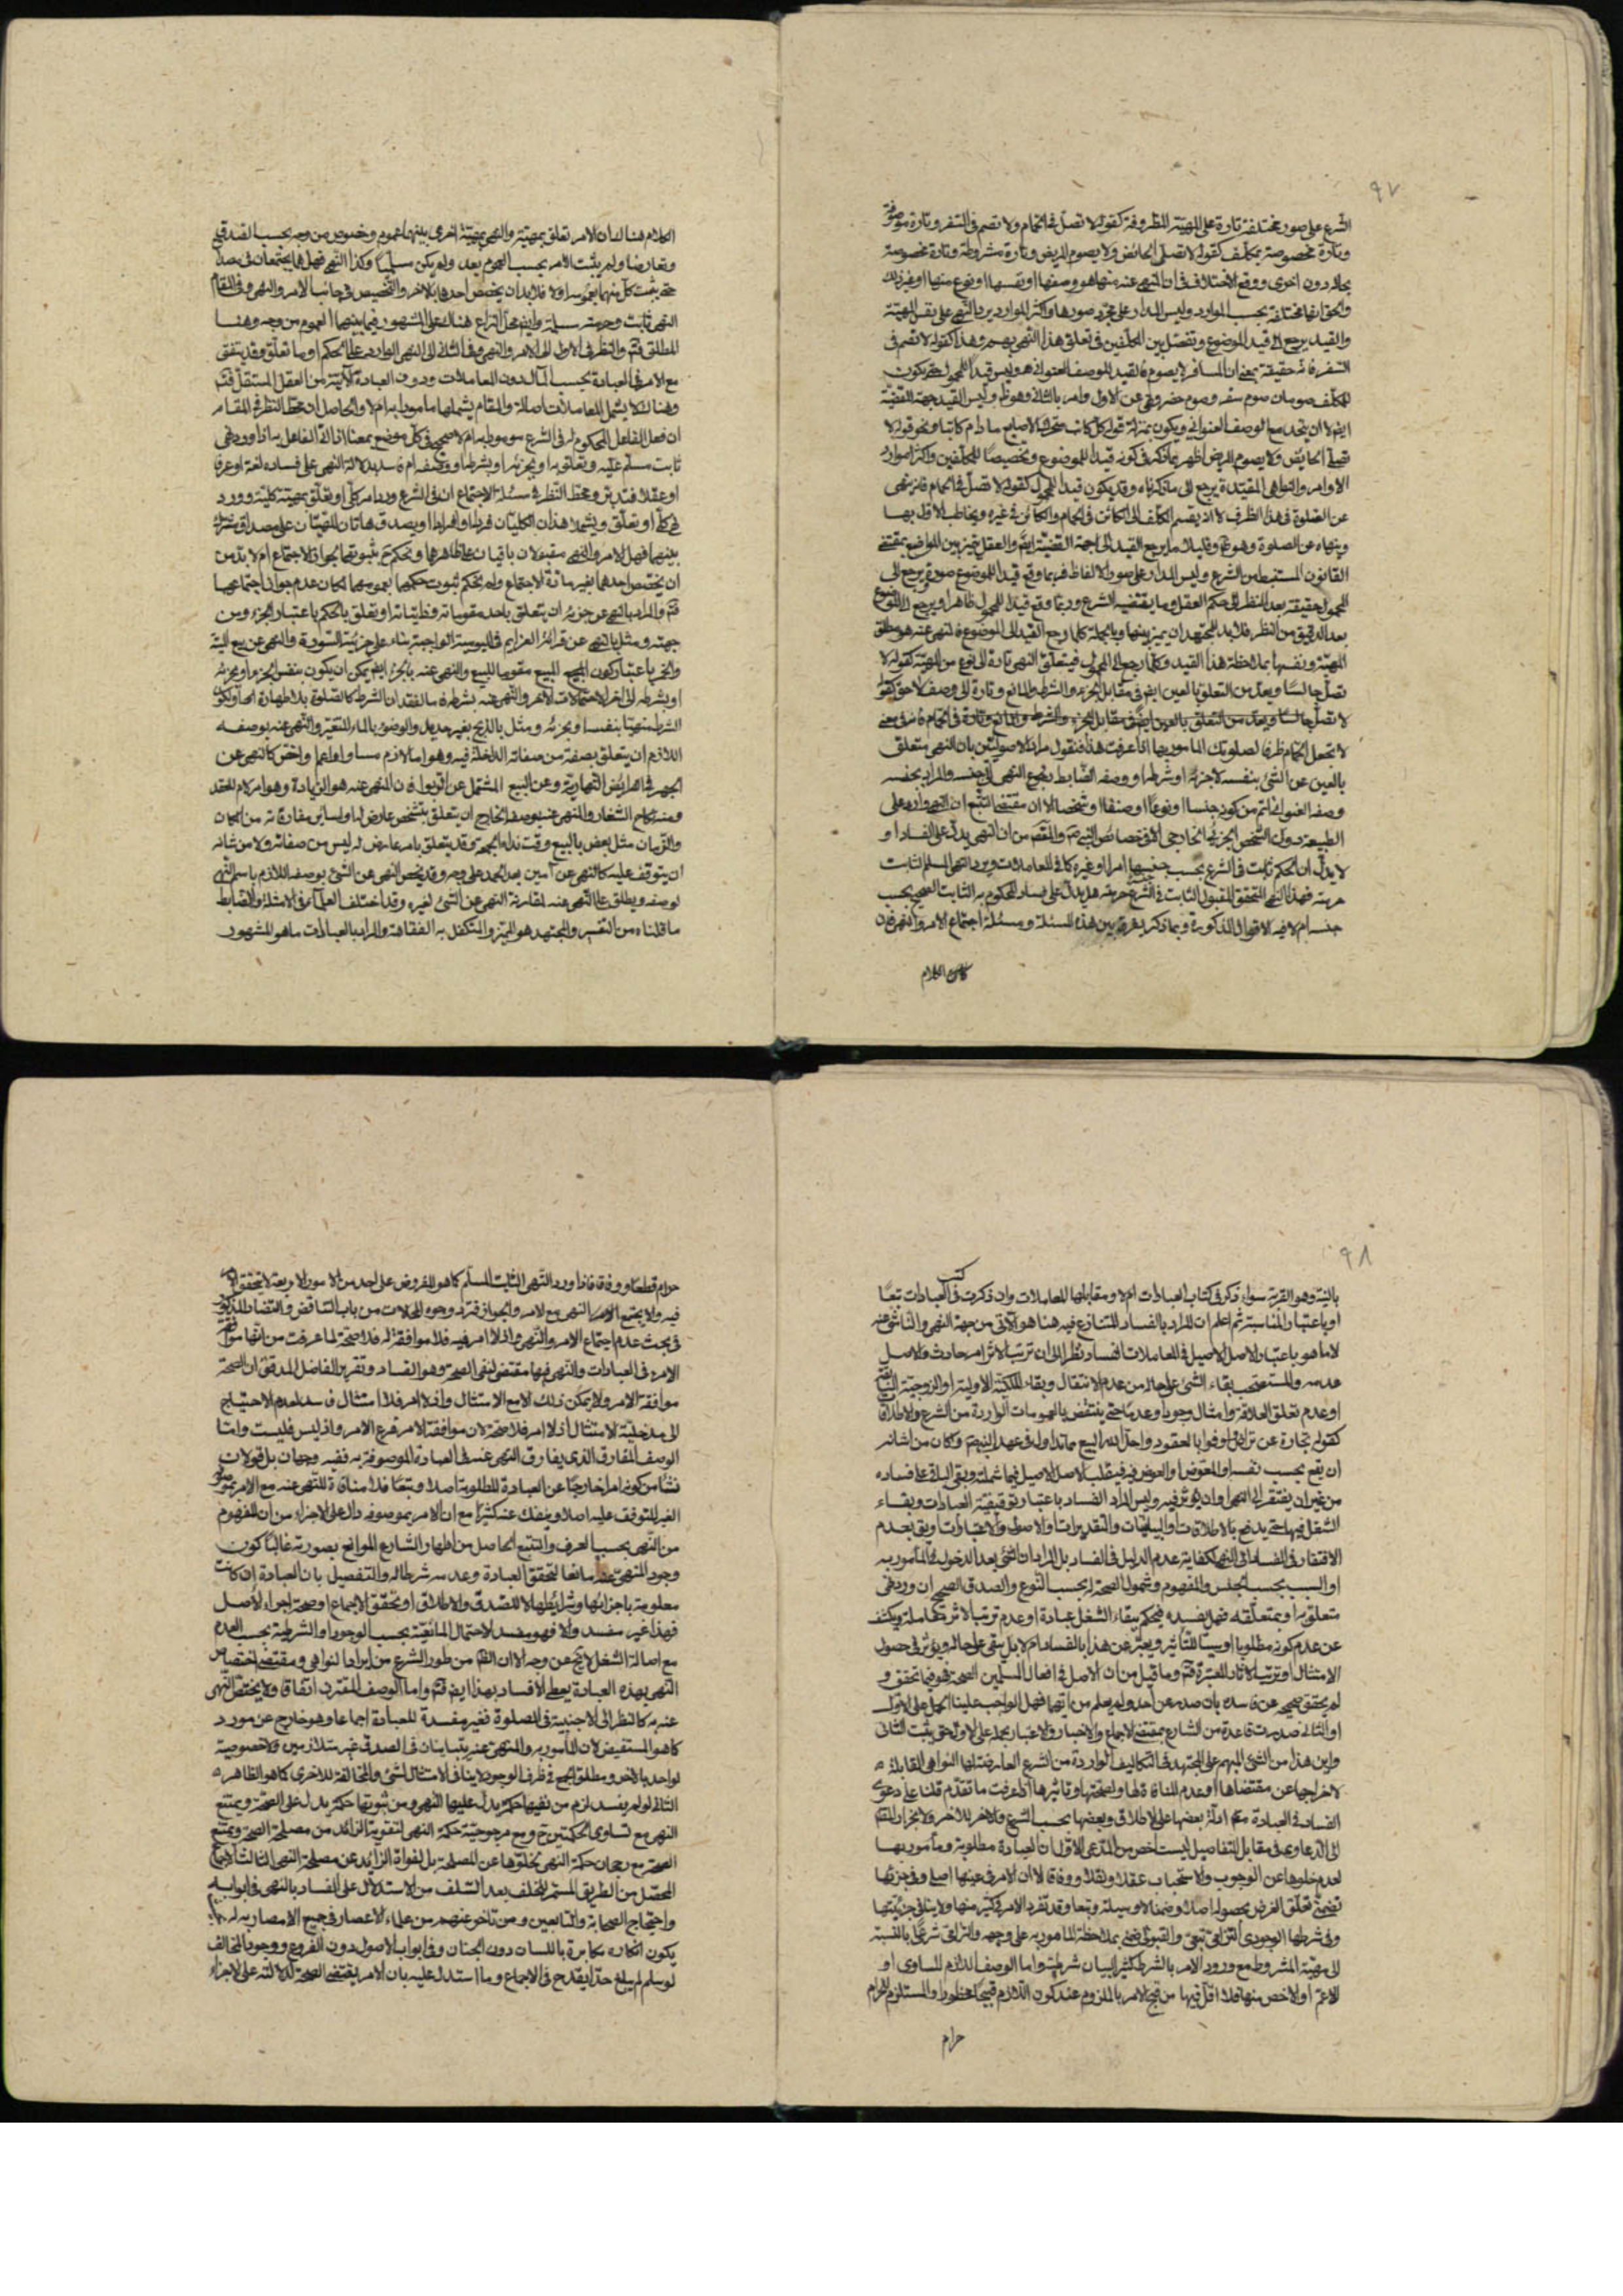 ٩٧
الشرع على صور مختلفة تارة على المهيّة المظروفة كقوله لا تصلّ في الحمام ولا تصم في السفر وتارة موصوفة
وتارة مخصوصة بمكلّف كقوله لا تصلّي الحائض ولا يصوم المريض وتارة مشروطة وتارة مخصوصة
بحال دون اخرى ووقع الاختلاف في ان المنهي عنه منها هو وصفها او نفسها او نوع منها او غير ذلك
والحق انها مختلفة بحسب الموارد وليس المدار على مجرّد صورها واكثر الموارد يرد النهي على نفس المهيّة
والقيد يرجع الى قيد الموضوع وتفصّل بين المكلّفين في تعلق هذا النهي بهم وهذا كقوله لا تصم في
السفر فانه حقيقة بمعنى ان المسافر لا يصوم فالقيد للوصف العنواني هو وليس قيدا للمحمول حتى يكون
للمكلف صومان صوم سفر وصوم حضر ونهي عن الاول وامر بالثاني وهو ظ وليس القيد جهة القضيّة
ايضا لان يتحد مع الوصف العنواني ويكون بمنزلة قوله كل كاتب متحرك الاصابع ما دام كاتبا ونحو قوله لا
تصلّي الحائض ولا يصوم المريض اظهر بما ذكر في كونه قيدا للموضوع وتخصيصا للمكلّفين واكثر موارد
الاوامر والنواهي المقيّدة يرجع الى ما ذكرناه وقد يكون قيدا للمحمول كقوله لا تصلّ في الحمام فانه نهي
عن الصلوة في هذا الظرف لا انه يقسم المكلّف الى الكائن في الحمام والكائن في غيره ويخاطب الاول بها
وينهاه عن الصلوة وهو ظ وقليلا ما يرجع القيد الى جهة القضيّة ايضا والعقل يميّز بين المواضع بمقتضى
القانون المستنبط من الشرع وليس المدار على صور الالفاظ فربما وقع قيدا للموضوع صورة يرجع الى
المحمول حقيقة بعد النظر الى حكم العقل وما يقتضيه الشرع وربما وقع قيدا للمحمول ظاهرا ويرجع الى الموضوع
بعد التدقيق من النظر فلا بد للمجتهد ان يميز بينها وبالجملة كلما رجع القيد الى الموضوع فالمنهي عنه هو مطلق
المهيّة ونفسها بملاحظة هذا القيد وكلما رجع الى المحمول فيتعلّق النهي تارة الى نوع من المهيّة كقوله لا
تصلّ جالسا ويعدّ من التعلق بالعين ايضا في مقابل الجزء والشرط والمانع وتارة الى وصف لاحق كقوله
لا تصلّ جالسا ويعدّ من التعلق بالعين ايضا في مقابل الجزء والشرط والمانع وتارة في الحمام فانه في معنى
لا تجعل الحمام ظرفا لصلوتك المأمور بها اذا عرفت هذا فنقول مراد الاصوليّين بان النهي متعلق
بالعين عن الشئ بنفسه لا جزئه او شرطه او وصفه الضابط رجوع النهي الى جنسه والمراد بجنسه
وصفه العنواني اعم من كونه جنسا او نوعا او صنفا او شخصا الا ان مقتضى التتبع ان النهي وارد على
الطبيعة دون الشخص الجزئي الخارجي الا في خصائص النبي ص والمقصّ من ان النهي يدلّ على الفساد او
لا يدلّ ان الحكم ثابت في الشرع بحسب جنسها امرا او غيره كما في المعاملات ويرد النهي المسلم الثابت
حرمته فهذا النهي المتحقق المقبول الثابت في الشرع حرمته هل يدلّ على فساد المحكوم به الثابت الصحيح بحسب
جنسه ام لا فيه الاقوال المذكورة وبما ذكر يفرق بين هذه المسئلة ومسئلة اجتماع الامر والنهي فان
الكلام
الكلام هناك ان الامر تعلق بمهيّة والنهي بمهيّة اخرى بينهما عموم وخصوص من وجه بحسب الصدق
وتعارضا ولم يثبت الامر بحسب العموم بعد ولم يكن مسلّما وكذا النهي فهل هما يجتمعان في مصداق
حتى يثبت كل منهما بعمومه او لا فلا بد ان يخصّص احدهما بالاخر والتخصيص في جانب الامر والنهي وفي المقام
النهي ثابت وحرمته مسلمة وايضا محل النزاع هناك على المشهور فيما بينهما العموم من وجه وهنا
المطلق فثمّ والنظر في الاول الى الامر والنهي وفي الثاني الى النهي الوارد على الحكم او ما تعلق وقد يتفق
مع الامر في العبادة بحسب المآل دون المعاملات ودون العبادة الآتية من العقل المستقل فثم
وهناك لا يشمل المعاملات اصالة والمقام يشملها مامورا به ام لا والحاصل ان محط النظر في المقام
ان فعل الفاعل المحكوم له في الشرع مامور به ام لا صحيح في كل موضع بمعنى اذا اتى الفاعل به اذا ورد نهي
ثابت مسلّم عليه وتعلق به او بجزئه او بشرطه او وصفه ام فاسد بدلالة النهي على فساده لغة او عرفا
او عقلا فتدبّر ومحط النظر في مسئلة الاجتماع انه في الشرع ورد امر كلي او تعلّق بمهيّة كليّة وورد
نهي كلّي او تعلّق ويشملا هذان الكليتان فردا وافرادا ويصدق هاتان المهيتان على مصداق مشترك
بينهما فهل الامر والنهي مقبولان باقيان على ظاهرها ويحكم ثم بثبوتهما لجواز الاجتماع ام لا بد من
ان يخصّص احدهما بغير مادّة الاجتماع ولم يحكم بثبوت حكمهما بعمومهما لمكان عدم جواز اجتماعهما
فثم والمراد بالنهي عن جزئه ان يتعلق باحد مقوماته وذاتياته او تعلق بالحكم باعتبار الجزء ومن
جهته ومثّل بالنهي عن قرائة العزايم في اليومية الواجبة بناء على جزئية السورة والنهي عن بيع الميتة
والخمر باعتبار كون المبيع مقوما للبيع والنهي عنه بالجزء ايضا يمكن ان يكون بنفس الجزء او بجزئه
او بشرطه الى اخر الاحتمالات الاخر والنهي عنه بشرطه ما لفقدان الشرط كالصلوة بلا طهارة اما وكون
الشرط منهيّا بنفسه او بجزئه ومثّل بالذبح بغير حديد والوضوء بالماء المتغير والنهي عنه بوصفه
اللازم ان يتعلق بصفة من صفاته الداخلة فيه وهو اما لازم مساو او اعم او اخص كالنهي عن
الجهر في الفرايض النهارية وعن البيع المشتمل عن الربوا فان المنهي عنه هو الزيادة وهو امر لازم للعقد
ومنه نكاح الشغار والمنهي عنه بوصفه الخارج ان يتعلق بتشخص عارض لها ولساير مفارقاته من المكان
والزمان مثل بعض بالبيع وقت نداء الجمعة وقد يتعلق بامر عارض له ليس من صفاته ولا من شانه
ان يتوقف عليه كالنهي عن آمين بعد الحمد على وجه وقد يخص النهي عن الشئ بوصفه اللازم باسم النهي
لوصفه ويطلق على النهي عنه لمقارنة النهي عن الشئ لغيره وقد اختلف العلماء في الامثلة والضابط
ما قلناه من التفسير والمجتهد هو المميّز والمتكفل به الفقاهة والمراد بالعبادات ما هو المشهور
٩٨
بالنيّة وهو القربة سواء ذكر في كتاب كتب العبادات ام لا ومقابلها المعاملات وان ذكرت في العبادات تبعا
او باعتبار المناسبة ثم اعلم ان المراد بالفساد المتنازع فيه هنا هو الآتي من جهة النهي والناشي منه
لا ما هو باعتبار الاصل الاصيل في المعاملات الفساد نظرا الى ان ترتب الاثر امر حادث والاصل
عدمه والمستصحب بقاء الشئ على حاله من عدم الانتقال وبقاء الملكية الاولية او الزوجية
او عدم تعلق العلاقة وامثاله وجودا وعدما حتى ينتقض بالعمومات الواردة من الشرع والاطلاق
كقوله تجارة عن تراض واوفوا بالعقود واحل الله البيع مما تداول في عهد النبي ص وكان من شانه
ان يقع بحسب نفسه او المعوض او العوض فيه فينقلب الاصل الاصيل فيما شملته وبقي الباقي على فساده
من غير ان يفتقر الى النهي او ان يؤثر فيه وليس المراد الفساد باعتبار توقيفيّة العبادات وبقاء
الشغل فيها حتى يدفع بالاطلاقات والبيانات والتقديرات والاصول والاعتبارات وبقى بعدم
الافتقار في الفساد الى النهي لكفاية عدم الدليل في الفساد بل المراد ان الشئ بعد الدخول في المأمور به
او السبب بحسب الجنس والمفهوم وشمول الصحة له بحسب النوع والصدق الصحيح ان ورد نهي
متعلق به او بمتعلّقه فهل يفسده فيحكم ببقاء الشغل عبادة او عدم ترتب الاثر معاملة ويكشف
عن عدم كونه مطلوبا او سببا للتأثير ويعبّر عن هذا بالفساد ام لا بل يبقى على حاله ويؤثر في حصول
الامتثال او ترتب الاثار المعتبرة فثم وما قيل من ان الاصل في افعال المسلمين الصحة فهو فيما تحقق و
لم يتحقق صحيحه عن فاسده بان صدر عن احد ولم يعلم من ايّهما فهل الواجب علينا الحمل على الاول
او الثاني صدرت قاعدة من الشارع بمقتضى الاجماع والاخبار والاعتبار بحمله على الاول حتى يثبت الثاني
واين هذا من الشئ المبهم على المجتهد في التكاليف الواردة من الشرع العارضة لها النواهي القابلة
لاخراجها عن مقتضاها او عدم المنافاة لها ولصحتها وتاثيرها اذا عرفت ما تقدّم قلنا على دعوى
الفساد في العبادة ادلة بعضها على الاطلاق وبعضها بحسب الشرع والاخر للآخر
الى الدعاوى في مقابل التفاصيل ليست اخص من المدّعى الاول ان العبادة مطلوبة ومأمور بها
لعدم خلوها عن الوجوب والاستحباب عقلا ونقلا ووفاقا لان الامر في عينها اصلي وفي جزئها
تضمّني تعلّق الغرض بحصوله اصلا وضمنا لا وسيلة وتبعا وقد تفرّد الامر في كثير منها ولا ينافي جزئيتها
وفي شرطها الوجودي التزامي تبعي والقبولي ضمني بملاحظة المامور به على وجهه والتزامي شرعيّ بالنسبة
الى مهيّة المشروط مع ورود الامر بالشرط كثيرا لبيان شرطيته واما الوصف اللازم المساوي او
الاعم او الاخص منها فلا اقل فيها من قبح الامر بالملزوم عند كون اللازم قبيحا محظورا والمستلزم للحرام
حرام
حرام قطعا ووفاقا فاذا ورد النهي الثابت المسلّم كما هو المفروض على احد من الامور الاربعة لا يتحقق الامر
فيه ولا يجتمع النهي مع الامر والجواز فترد وجوه المحالات من باب التناقض والتضاد المذكور
في بحث عدم اجتماع الامر والنهي واذ لا امر فيه فلا موافقة له فلا صحة لما عرفت من انها موافقة
الامر في العبادات والنهي فيها مقتض لنفي الصحة وهو الفساد وتقرير الفاضل المدقق ان الصحة
موافقة الامر ولا يمكن ذلك الا مع الامتثال واذ لا امر فلا امتثال فاسد لعدم الاحتياج
الى مدخليّة الامتثال اذ لا امر فلا صحة لان موافقة الامر فرع الامر واذ ليس فليست واما
الوصف المفارق الذي يفارق النهي عنه في العبادة الموصوفة به ففيه وجهان بل قولان
نشأ من كونه امرا خارجيا عن العبادة المطلوبة اصلا وتبعا فلا منافاة للنهي عنه مع الامر بموصوفه
الغير المتوقف عليه اصلا وينفك عنه كثيرا مع ان الامر بموصوفه دال على الاجزاء من ان المفهوم
من النهي بحسب العرف والتتبع الحاصل من اظهار الشارع الموانع بصورته غالبا كون
وجود المنهي عنه مانعا لتحقق العبادة وعدمه شرطا له والتفصيل بان العبادة ان كانت
معلومة باجزائها وشرايطها للصدق والاطلاق او تحقق الاجماع او صحة اجراء الاصل
فهذا غير مفسد والا فهو مفسد لاحتمال المانعيّة بحسب الوجود او الشرطية بحسب العدم
مع اصالة الشغل لا يخ عن وجه الا ان الظ من طور الشرع من ايراد النواهي ومقتضى اختصاص
النهي بهذه العبادة يعطي الافساد بهذا ايضا فثم واما الوصف المقترن اتفاقا ولا يختص النهي
عنه به كالنظر الى الاجنبية في الصلوة فغير مفسدة للعبادة اجماعا وهو خارج عن مورد
كما هو المستفيض لان المأمور به والمنهي عنه يتباينان في الصدق غير متلازمين ولا خصوصية
لواحد بالاخر ومطلق الجمع في ظرف الوجود لا ينافي الامتثال لشئ والمخالفة للاخرى كما هو الظاهر
الثاني لو لم يفسد لزم من نفيها حكمة يدل عليها النهي ومن ثبوتها حكمة يدل على الصحة ويمتنع
النهي مع تساوي الحكمتين ح ومع مرجوحيّة حكمة النهي لتفوية الزائد من مصلحة الصحة ويمتنع
الصحة مع رجحان حكمة النهي لخلوّها عن المصلحة بل لفوات الزائد عن مصلحة النهي الثالث الاجماع
المحصّل من الطريق المستمر للخلف بعد السّلف من الاستدلال على الفساد بالنهي في ابوابه
واحتجاج الصحابة والتابعين ومن تاخر عنهم من علماء الاعصار في جميع الامصار به
يكون انكاره مكابرة باللسان دون الجنان وفي ابواب الاصول دون الفروع ووجود المخالف
لو سلم لم يبلغ حدّا يقدح في الاجماع وما استدل عليه بان الامر يقتضي الصحة لدلالته على الاجزاء